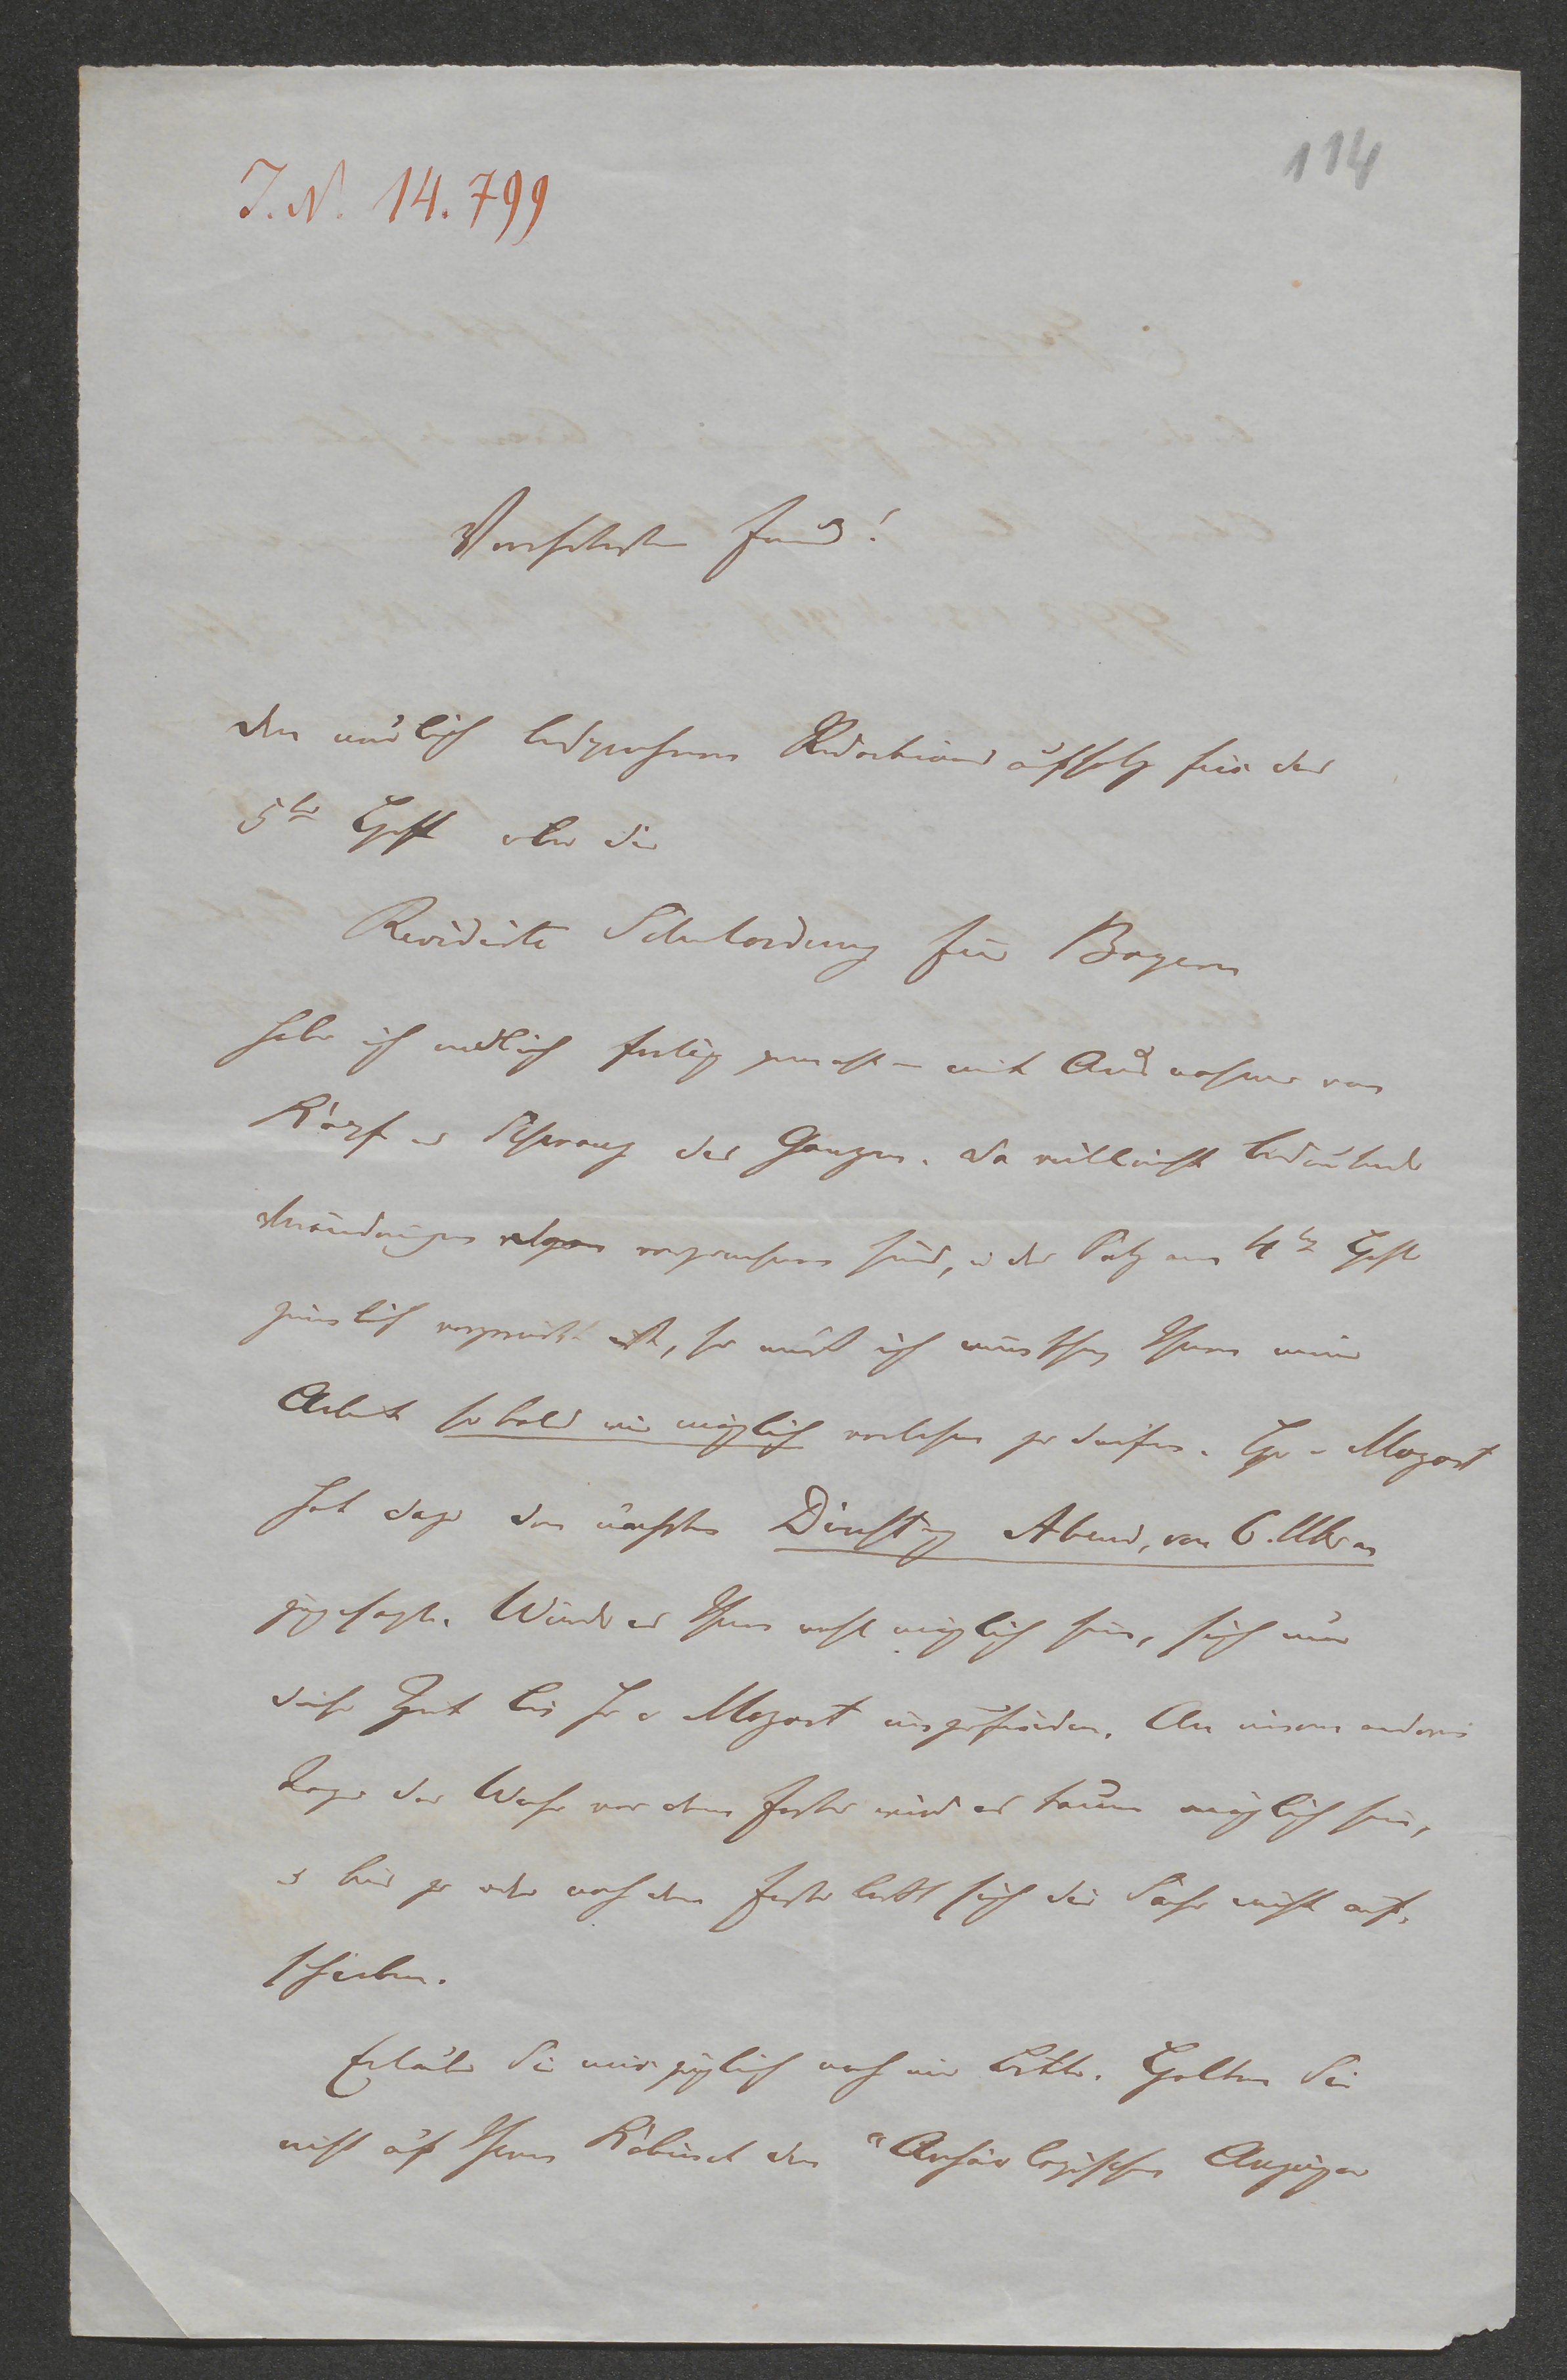 J. N. 14.799
114
Verehrtester Freund!
Den neulich besprochenen Redactionsaufsatz für das
5te Heft über die
Revidirte Schulordnung für Bayern
habe ich endlich fertig gemacht – mit Ausnahme von
Kopf u Schwanz des Ganzen. Da vielleicht bedeutende
Änderungen vorzunehmen sind, u der Satz am 4ten Heft
ziemlich vorgerückt ist, so muß ich wünschen Ihnen meine
Arbeit so bald wie möglich vorlesen zu dürfen. Hr v Mozart
hat dazu den nächsten Dinstag Abend, von 6 Uhr an
zugesagt. Würde es Ihnen wohl möglich sein, sich um
diese Zeit bei Hr v Mozart einzufinden. An einem anderen
Tage der Woche vor dem Feste wird es kaum möglich sein,
u bis zu oder nach dem Feste läßt sich die Sache nicht auf-
schieben.
Erlauben Sie mir zugleich noch eine Bitte. Halten Sie
nicht auf Ihrem Kabinet den "Archäologischen Anzeiger